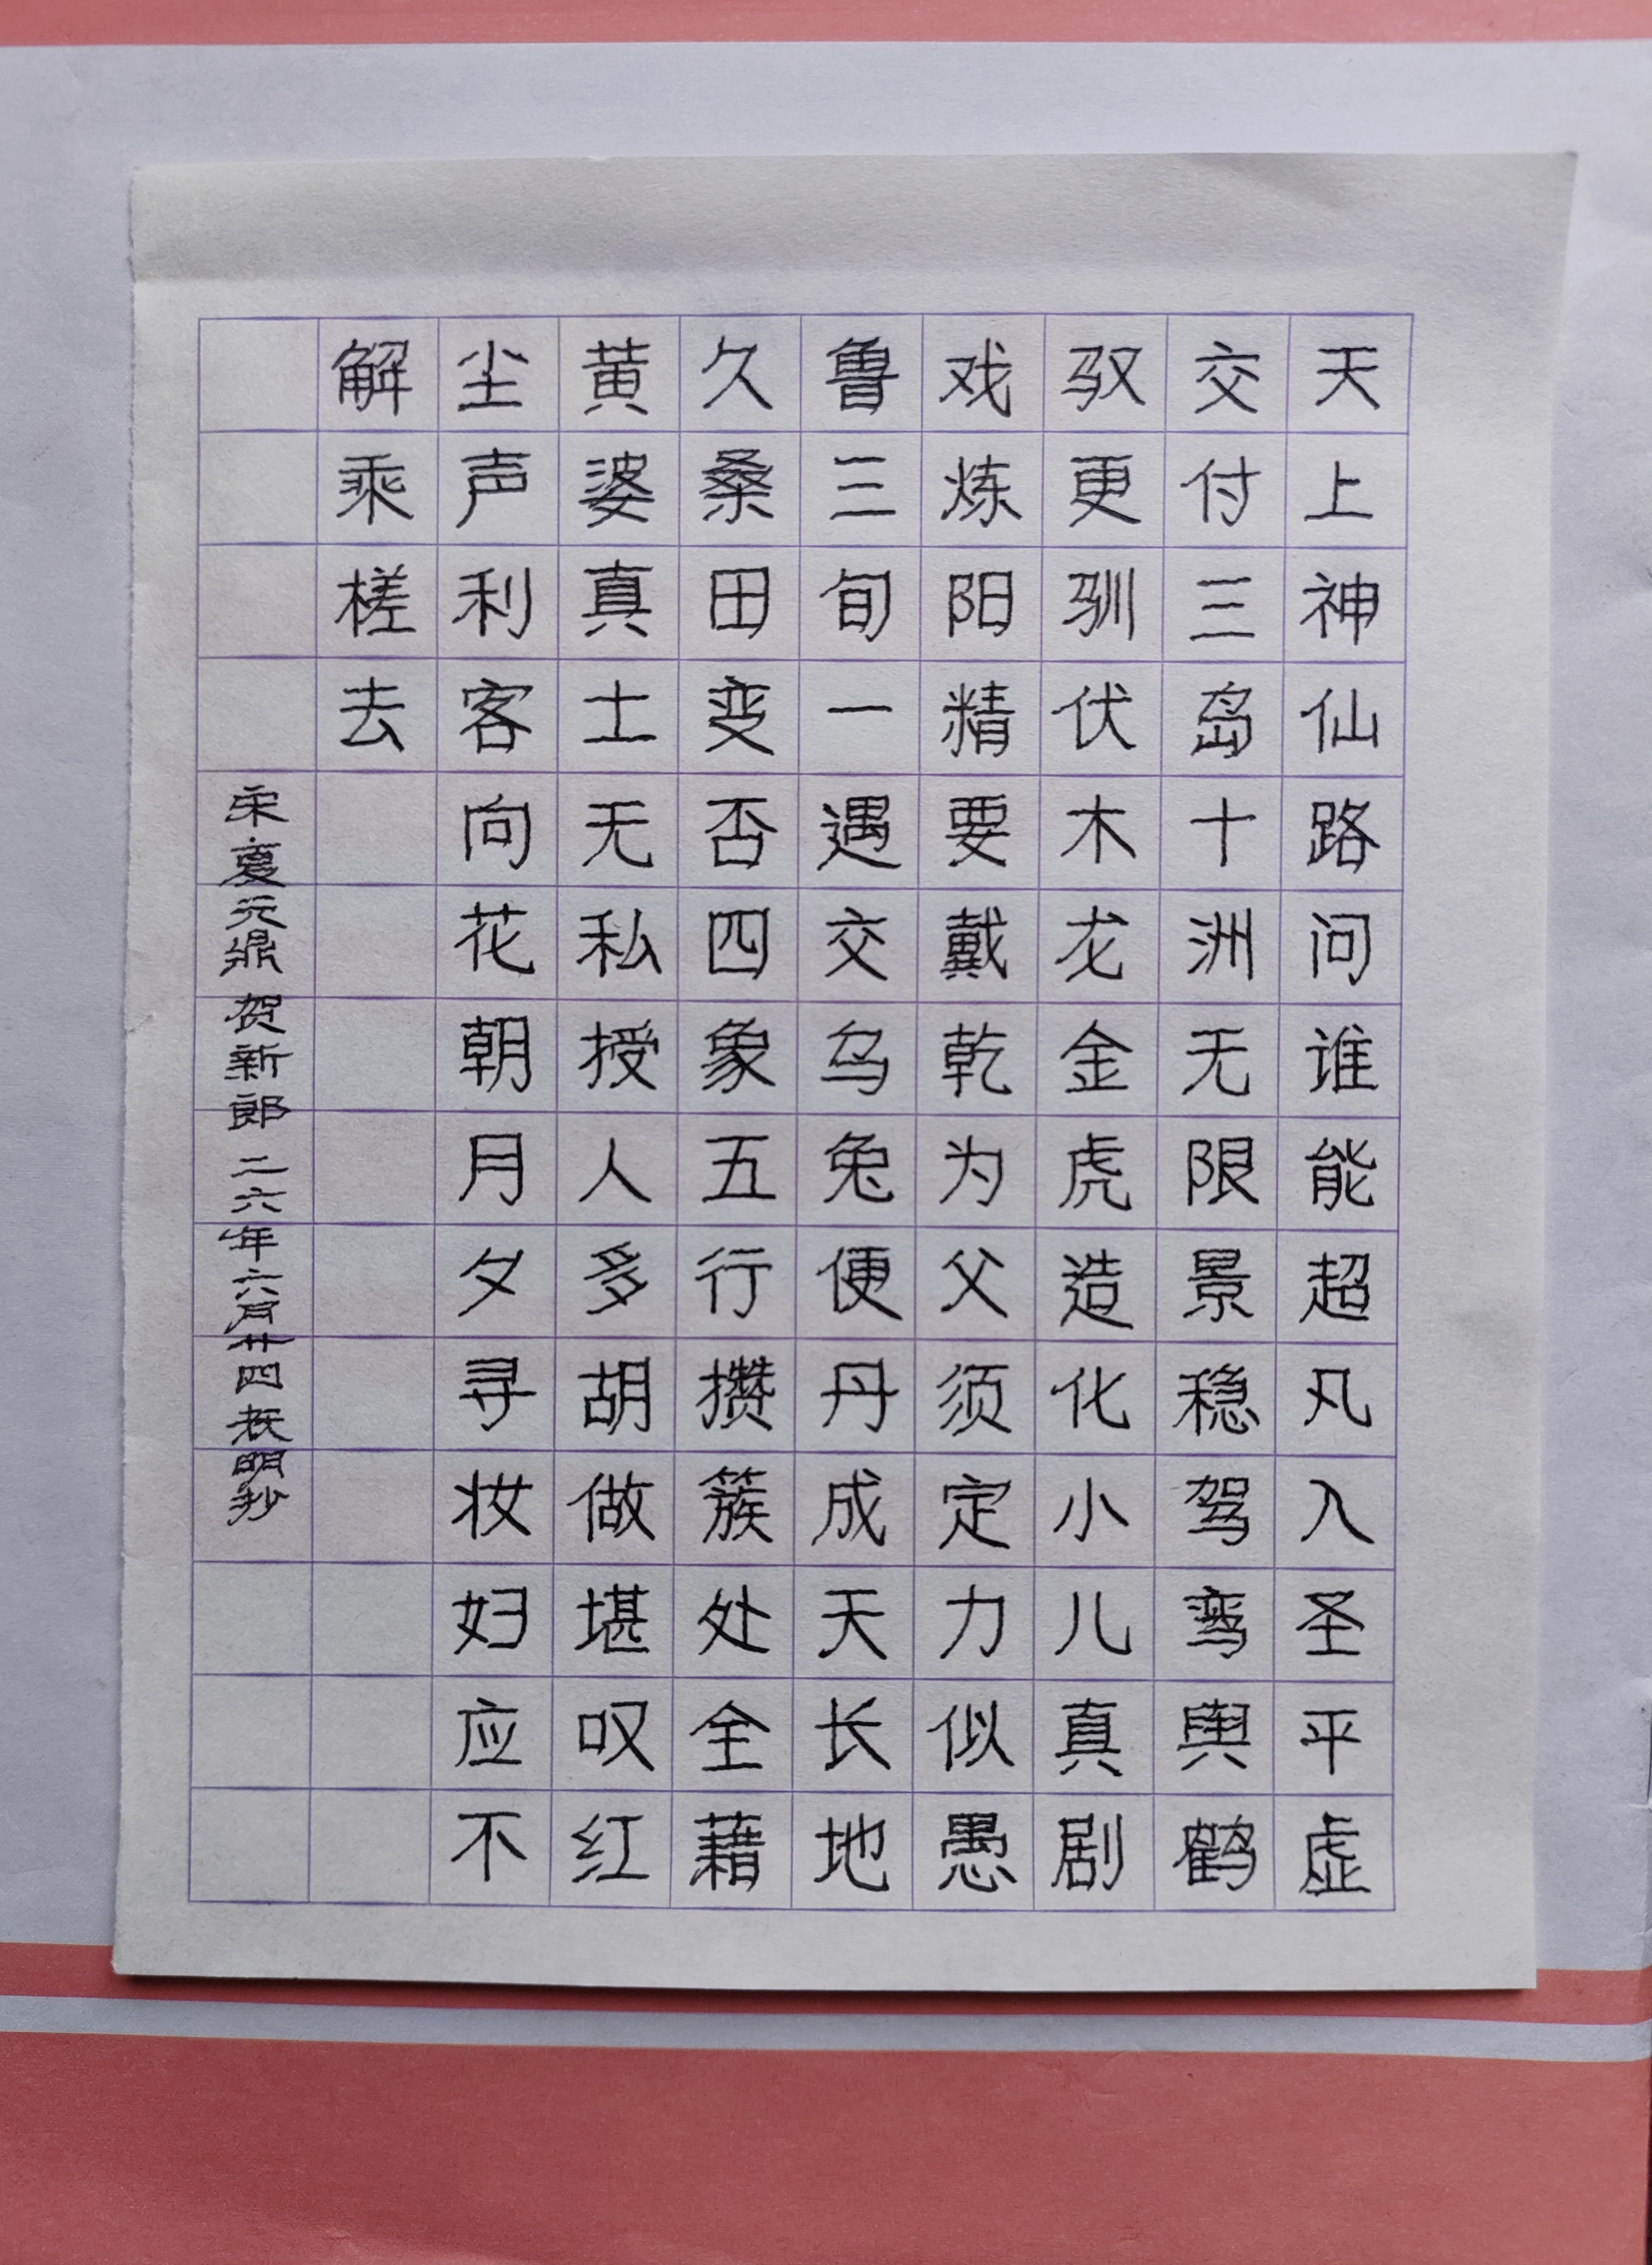 天上神仙路问谁能超凡入圣平虚
交付三岛十洲无限景稳驾鸾舆鹤
驭更驯伏木龙金虎造化小儿真剧
戏炼阳精要戴乾为父须定力似愚
鲁三旬一遇交乌兔便丹成天长地
久桑田变否四象五行攒簇处全藉
黄婆真土无私授人多胡做堪叹红
尘声利客向花朝月夕寻妆妇应不
解乘槎去
宋夏元鼎贺新郎二六年六月廿四英明抄